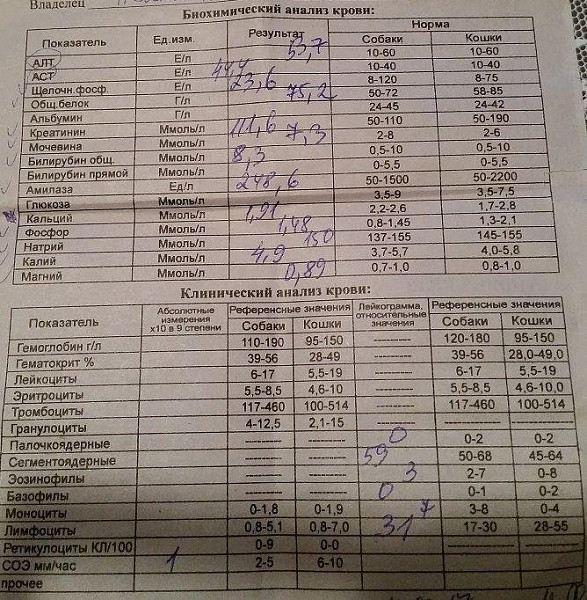 Владелец
Биохимический анализ крови:
Показатель Ед.изм. Результат Норма
Собаки Кошки
АЛТ Е/л 53,7 10-60 10-60
АСТ Е/л 44,4 10-40 10-40
Щелочн.фосф. Е/л 23,6 8-120 8-75
Общ.белок Г/л 75,2 50-72 58-85
Альбумин Г/л 24-45 24-42
Креатинин Ммоль/л 111,6 50-110 50-190
Мочевина Ммоль/л 7,3 2-8 2-6
Билирубин общ. Ммоль/л 8,3 0,5-10 0,5-10
Билирубин прямой Ммоль/л 0-5,5 0-5,5
Амилаза Ед/л 248,6 50-1500 50-2200
Глюкоза Ммоль/л 3,5-9 3,5-7,5
Кальций Ммоль/л 1,91 2,2-2,6 1,7-2,8
Фосфор Ммоль/л 1,48 0,8-1,45 1,3-2,1
Натрий Ммоль/л 150 137-155 145-155
Калий Ммоль/л 4,9 3,7-5,7 4,0-5,8
Магний Ммоль/л 0,89 0,7-1,0 0,8-1,0
Клинический анализ крови:
Показатель Абсолютные измерения х10 в 9 степени Референсные значения Лейкограмма, относительные значения Референсные значения
Собаки Кошки Собаки Кошки
Гемоглобин г/л 110-190 95-150 ---------- 120-180 95-150
Гематокрит % 39-56 28-49 ---------- 39-56 28,0-49,0
Лейкоциты 6-17 5,5-19 ---------- 6-17 5,5-19
Эритроциты 5,5-8,5 4,6-10 ---------- 5,5-8,5 4,6-10,0
Тромбоциты 117-460 100-514 ---------- 117-460 100-514
Гранулоциты 4-12,5 2,1-15 ---------- ---------- ----------
Палочкоядерные ---------- ---------- 0 0-2 0-2
Сегментоядерные ---------- ---------- 59 50-68 45-64
Эозинофилы ---------- ---------- 3 2-7 0-8
Базофилы ---------- ---------- 0 0-1 0-2
Моноциты 0-1,8 0-1,9 7 3-8 0-4
Лимфоциты 0,8-5,1 0,8-7,0 31 17-30 28-55
Ретикулоциты КЛ/100 0-9 0-0 ---------- ----------
СОЭ мм/час 1 2-5 6-10
прочее